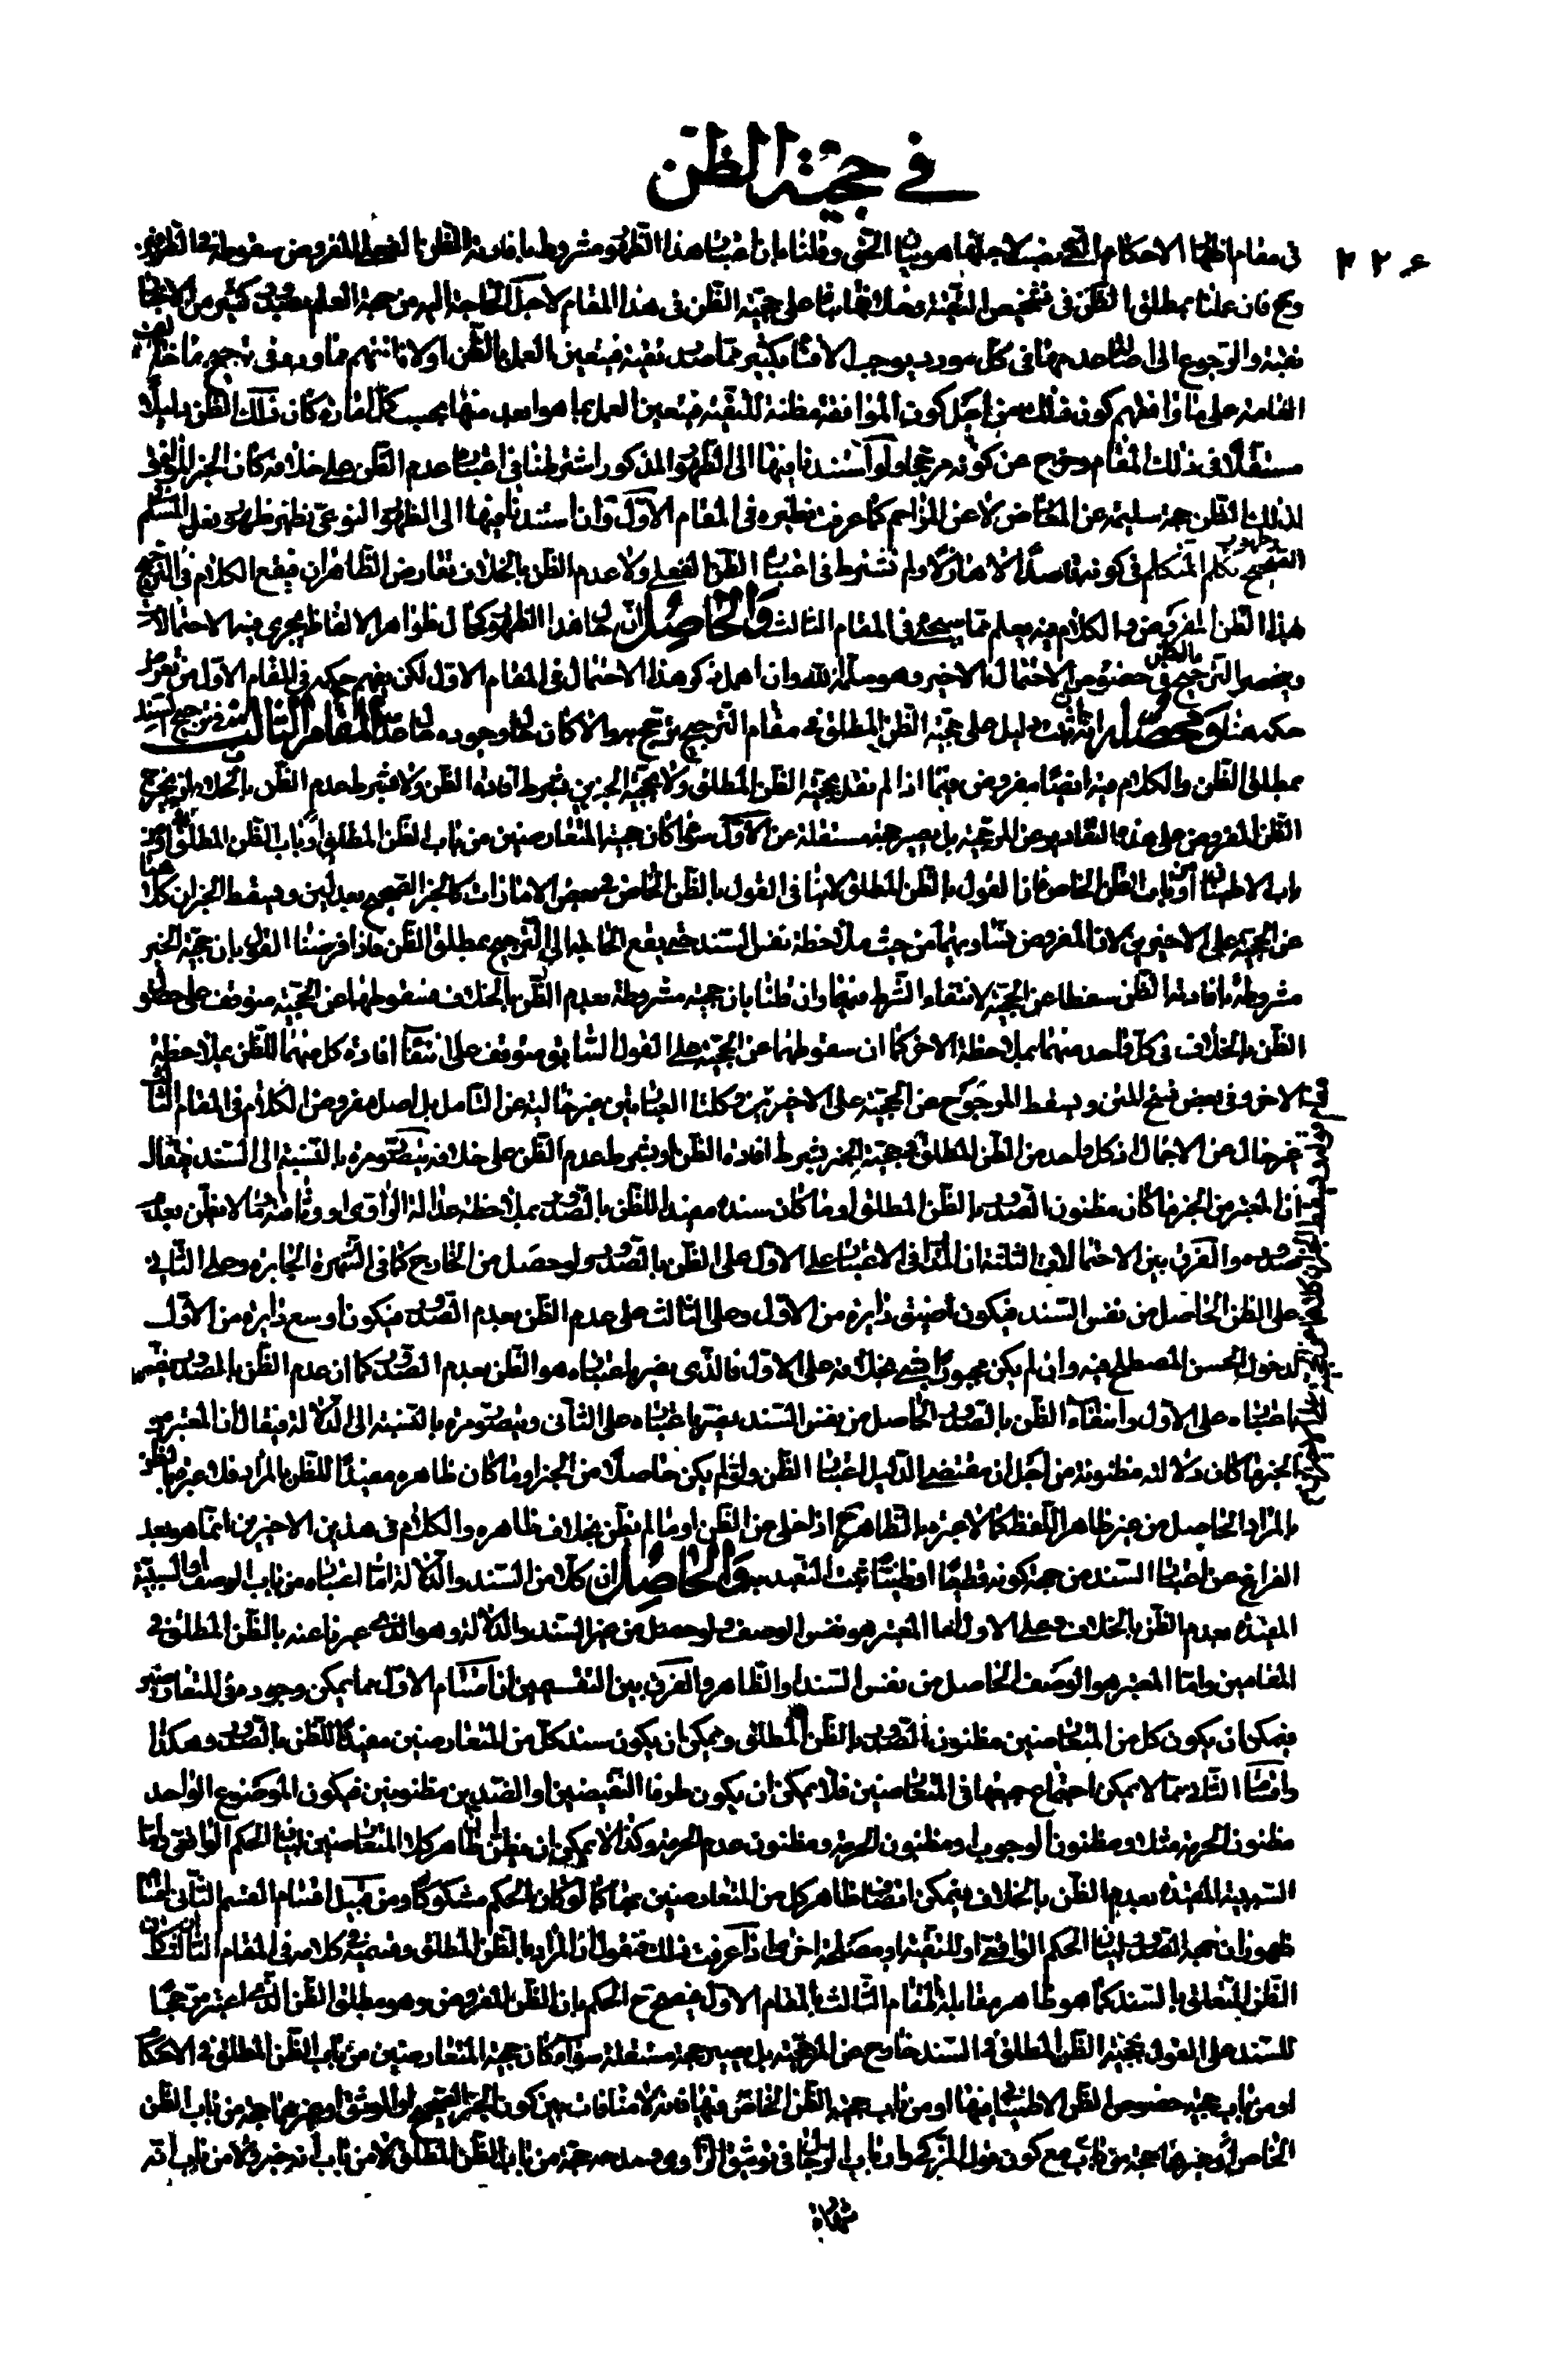 في حجية الظن
٤٢٤
في مقام اظهار الاحكام التي نصب لاجلها هو بيان الحق وقلنا بان اعتبار هذا الظهور مشروط بافادته الظن الفعلي المفروض سقوطه
وح فان علمنا بمطلق الظن في تشخيص التقية على حجية الظن في هذا المقام لاجل الحاجة اليه من جهة العلم بصدور كثير من الاخبار
تقية والرجوع الى اصالة عدمها في كل مورد يوجب الافتاء بكثير مما صدر تقية فيتعين العمل بالظن او لانا نفهم مما ورد في ترجيح ما خالف
العامة على ما وافقهم كون ذلك من اجل كون الموافقة مظنة للتقية فيتعين العمل بما هو ابعد عنها بحسب كل امارة كان ذلك الظن دليلا
مستقلا في ذلك المقام وخرج عن كونه مرجحا ولو استندنا فيها الى الظهور المذكور واشترطنا في اعتباره عدم الظن على خلافه كان الخبر الموافق
لذلك الظن حجة سليمة عن المعارض لا عن المزاحم كما عرفت نظيره في المقام الاول وان استندنا فيها الى الظهور النوعي نظير ظهور فعل المسلم في
الصحيح وظهور تكلم المتكلم في كونه قاصدا لا هازلا ولم نشترط في اعتباره الظن الفعلي ولا عدم الظن بالخلاف تعارض الظاهران فيقع الكلام في الترجيح
بهذا الظن المفروض والكلام فيه يعلم مما سيجئ في المقام الثالث والحاصل ان حال هذا الظهور كحال ظواهر الالفاظ يجري فيه الاحتمالات
وينحصر الترجيح بالظن في خصوص الاحتمال الاخير وهو وان اهمل ذكر هذا الاحتمال في المقام الاول لكن يفهم حكمه في المقام الاول من تعرض
حكمه هنا ومحصله انه ان ثبت دليل على حجية الظن المطلق في مقام الترجيح يرجح به والا كان وجوده كعدمه المقام الثالث في ترجيح السند
بمطلق الظن والكلام فيه ايضا مفروض فيما اذا لم نقل بحجية الظن المطلق ولا بحجية الخبرين بشرط افادة الظن ولا بشرط عدم الظن بالخلاف اذ يخرج
الظن المفروض على هذه التقادير عن المرجحية بل يصير حجة مستقلة عن الاول سواء كان حجية المتعارضين من باب الظن المطلق او من
باب الاطمينان او من باب الظن الخاص فان القول بالظن المطلق لا ينافي القول بالظن الخاص في بعض الامارات كالخبر الصحيح بعدلين ويسقط الخبران كلاهما
عن الحجية على الاخيرين لان المفروض تساويهما من حيث ملاحظة نفس السند حتى يقع الحاجة الى الترجيح بمطلق الظن فاذا فرضنا القول بان حجية الخبر
مشروطة بافادته الظن سقطا عن الحجية لانتفاء الشرط فيهما وان قلنا بان حجيته مشروطة بعدم الظن بالخلاف فسقوطهما عن الحجية متوقف على حصول
الظن بالخلاف في كل واحد منهما بملاحظة الاخر كما ان سقوطهما عن الحجية على القول السابق متوقف على انتفاء افادة كل منهما للظن بملاحظة
الاخر وفي بعض نسخ المتن ويسقط المرجوح عن الحجية على الاخيرين وكلتا العبارتين غير خالية عن التامل بل اصل مفروض الكلام في المقام الثالث
غير خال عن الاجمال اذ كل واحد من الظن المطلق وحجية الخبر بشرط افادة الظن او بشرط عدم الظن على خلافه يتصور تارة بالنسبة الى السند فيقال
ان المعتبر من الخبر ما كان مظنون الصدور بالظن المطلق او ما كان سنده مفيدا للظن بالصدور بملاحظة عدالة الراوي او وثاقته او ما لا يظن بعدم
صدوره والفرق بين الاحتمالات الثلثة ان المدار في الاعتبار على الاول على الظن بالصدور ولو حصل من الخارج كما في الشهرة الجابرة وعلى الثاني
على الظن الحاصل من نفس السند فيكون اضيق دائرة من الاول وعلى الثالث على عدم الظن بعدم الصدور فيكون اوسع دائرة من الاول
لدخول الحسن المصطلح فيه وان لم يكن مجبورا بشئ بخلافه على الاول فالذي يضر باعتباره هو الظن بعدم الصدور كما ان عدم الظن بالصدور يضر
باعتباره على الاول وانتفاء الظن بالصدور الحاصل من نفس السند يضر باعتباره على الثاني ويتصور تارة بالنسبة الى الدلالة فيقال ان المعتبر من
الخبر ما كان دلالته مظنونة من اجل ان مقتضى الدليل اعتبار الظن ولو لم يكن حاصلا من الخبر او ما كان ظاهره مفيدا للظن بالمراد فلا عبرة بالظن
بالمراد الحاصل من غير ظاهر اللفظ كما لا عبرة بالظاهر ح اذا خلى عن الظن او ما لم يظن بخلاف ظاهره والكلام في هذين الاخيرين انما هو بعد
الفراغ عن اعتبار السند من جهة كونه قطعيا او ظنيا تحت التعبد به والحاصل ان كلا من السند والدلالة اما اعتباره من باب الوصف او السببية
المقيدة بعدم الظن بالخلاف وعلى الاول اما المعتبر هو نفس الوصف ولو حصل من غير السند والدلالة وهو الذي عبرنا عنه بالظن المطلق في
المقامين واما المعتبر هو الوصف الحاصل من نفس السند او الظاهر والفرق بين القسمين ان اقسام الاول مما يمكن وجوده في المتعارضين
فيمكن ان يكون كل من المتعارضين مظنون الصدور بالظن المطلق ويمكن ان يكون سند كل من المتعارضين مفيدا للظن بالصدور وهكذا
واقسام الثاني مما لا يمكن اجتماع جميعها في المتعارضين فلا يمكن ان يكون طرفا النقيضين او الضدين مظنونين فيكون الموضوع الواحد
مظنون الحرمة مثلا ومظنون الوجوب او مظنون الحرمة ومظنون عدم الحرمة وكذا لا يمكن ان يظن ان ظاهر كلا المتعارضين لبيان الحكم الواقعي واما
السببية المقيدة بعدم الظن بالخلاف فيمكن اتصاف ظاهر كل من المتعارضين بها كما لو كان الحكم مشكوكا ومن قبيل اقسام القسم الثاني اقسام
ظهور ان جهة الصدور لبيان الحكم الواقعي او للتقية او مصلحة اخرى اذا عرفت ذلك فنقول ان المراد بالظن المطلق وقسميه في كلامه في المقام الثالث ان كان
الظن المتعلق بالسند كما هو ظاهر مقابلة المقام الثالث بالمقام الاول فيصح ح الحكم بان الظن المفروض وهو مطلق الظن الذي اعتبر مرجحا
للسند على القول بحجية الظن المطلق في السند خارج عن المرجحية بل يصير حجة مستقلة سواء كان حجية المتعارضين من باب الظن المطلق في الاحكام
او من باب حجية خصوص الظن الاطميناني فيها او من باب حجية الظن الخاص فيها فانه لا منافات بين كون الخبر الصحيح او الموثق او غيرهما حجة من باب الظن
الخاص او غيرها حجة من باب مع كون قول المزكي وارباب الرجال في توثيق الراوي وعدمه حجة من باب الظن المطلق لا من باب انه خبر ولا من باب انه
شهادة